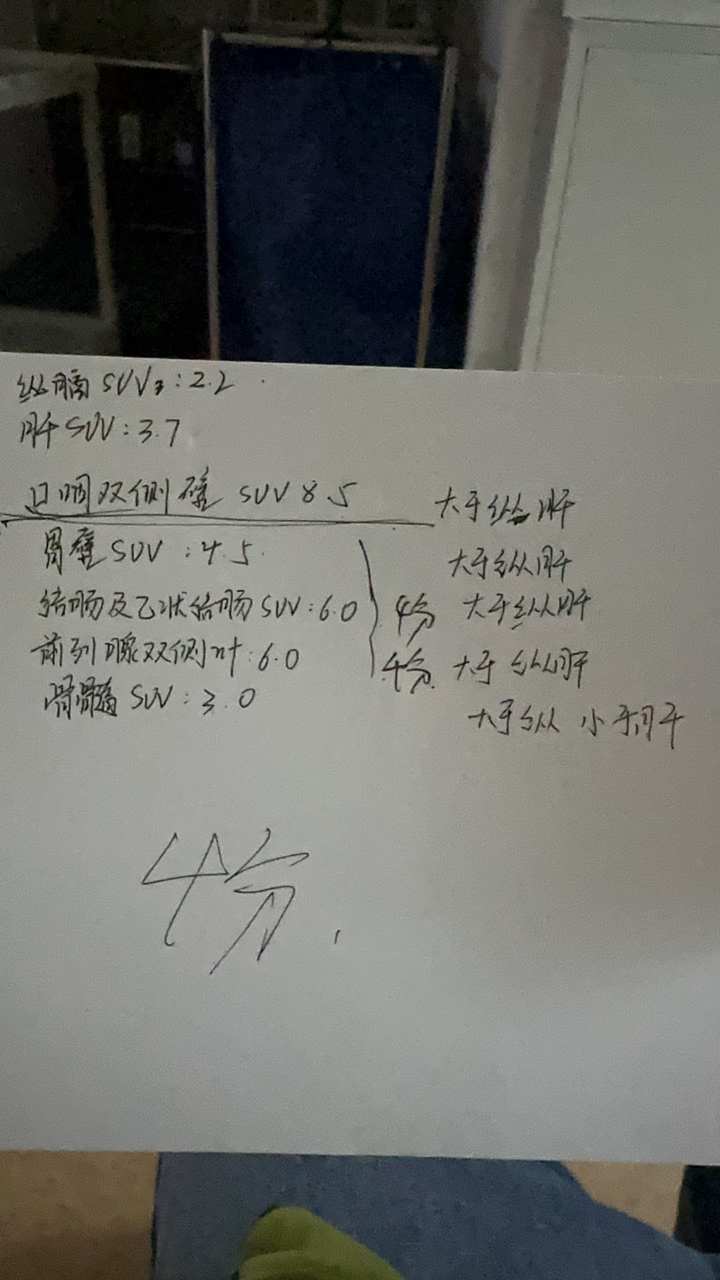 纵膈 SUV₃:2.2
肝 SUV:3.7
口咽双侧壁 SUV 8.5 大于纵肝
胃壁 SUV:4.5 大于纵肝
结肠及乙状结肠 SUV:6.0 4分 大于纵肝
前列腺双侧叶:6.0 4分 大于纵肝
骨髓 SUV:3.0 大于纵 小于肝
4分.